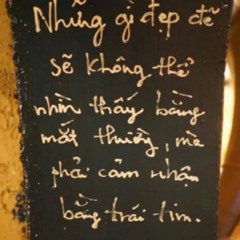 Những gì đẹp đẽ
sẽ không thể
nhìn thấy bằng
mắt thường, mà
phải cảm nhận
bằng trái tim.